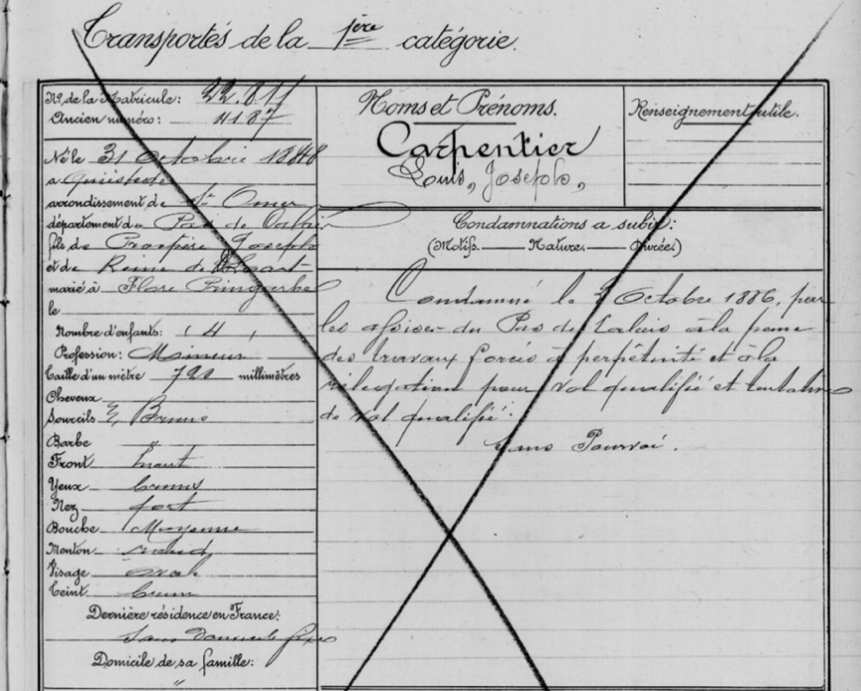 Transportés de la 1ère catégorie.
No. de la Matricule: 22.811
Ancien numéro: 11187
Noms et Prénoms.
Carpentier
Louis, Joseph,
Renseignement utile.
Né le 31 Octobre 1848
a Quiestède
arrondissement de St Omer
département du Pas de Calais
fils de Prospère Joseph
et de Reine
marié à Flore
le
Nombre d'enfants: (4)
Profession: Mineur
Taille d'un mètre 720 millimètres
Cheveux
Sourcils } Bruns
Barbe "
Front haut
Yeux bruns
Nez fort
Bouche Moyenne
Menton rond
Visage oval
Teint brun
Dernière résidence en France:
Sans domicile fixe
Domicile de sa famille:
"
Condamnations a subir:
(Motifs. Nature. Durée)
Condamné le Octobre 1886, par
les assises du Pas de Calais à la peine
des travaux forcés à perpétuité et à la
rélégation pour vol qualifié et tentative
de vol qualifié.
Sans Pourvoi.